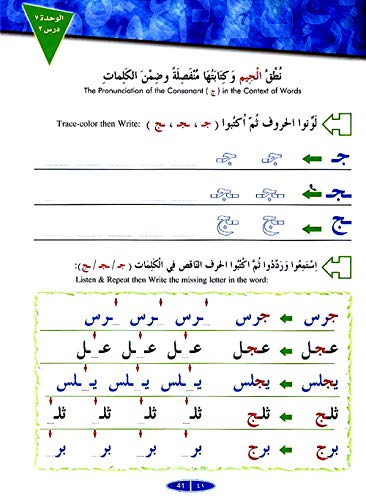 الوحدة ٧
درس ٢
نُطْقُ الْجِيم وَكِتابَتُهَا مُنْفَصِلَةً وضِمْنَ الكَلِماتِ
The Pronunciation of the Consonant ( ج ) in the Context of Words
لَوِّنوا الحروف ثُمَّ اُكْتُبوا ( جـ ، ـجـ ، ـج ) Trace-color then Write:
جـ جـ جـ
ـجـ ـجـ ـجـ
ـج ـج ـج
اِسْتَمِعُوا وَرَدِّدُوا ثُمَّ اكْتُبُوا الحرف النَّاقص فِي الْكَلِمَاتِ (جـ /ـجـ/ ـج):
Listen & Repeat then Write the missing letter in the word:
جرس جرس _ـرس _ـرس _ـرس
عـجـل عـجـل عـ_ـل عـ_ـل عـ_ـل
يجلس يجلس يـ_ـلس يـ_ـلس يـ_ـلس
ثلـج ثلـج ثلـ_ ثلـ_ ثلـ_ ثلـ_
برج برج بر_ بر_ بر_ بر_
49 ٤٩